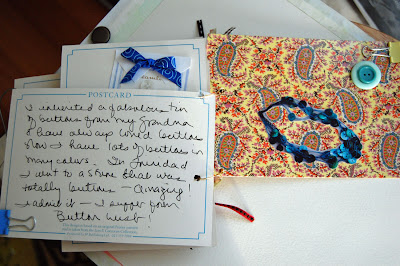 POSTCARD
I inherited a fabulous tin
of buttons from my Grandma
I have always loved buttons
Now I have lots of buttons in
many colors. In Trinidad
I went to a store that was
totally buttons — Amazing!
I admit it — I suffer from
Button Lust!